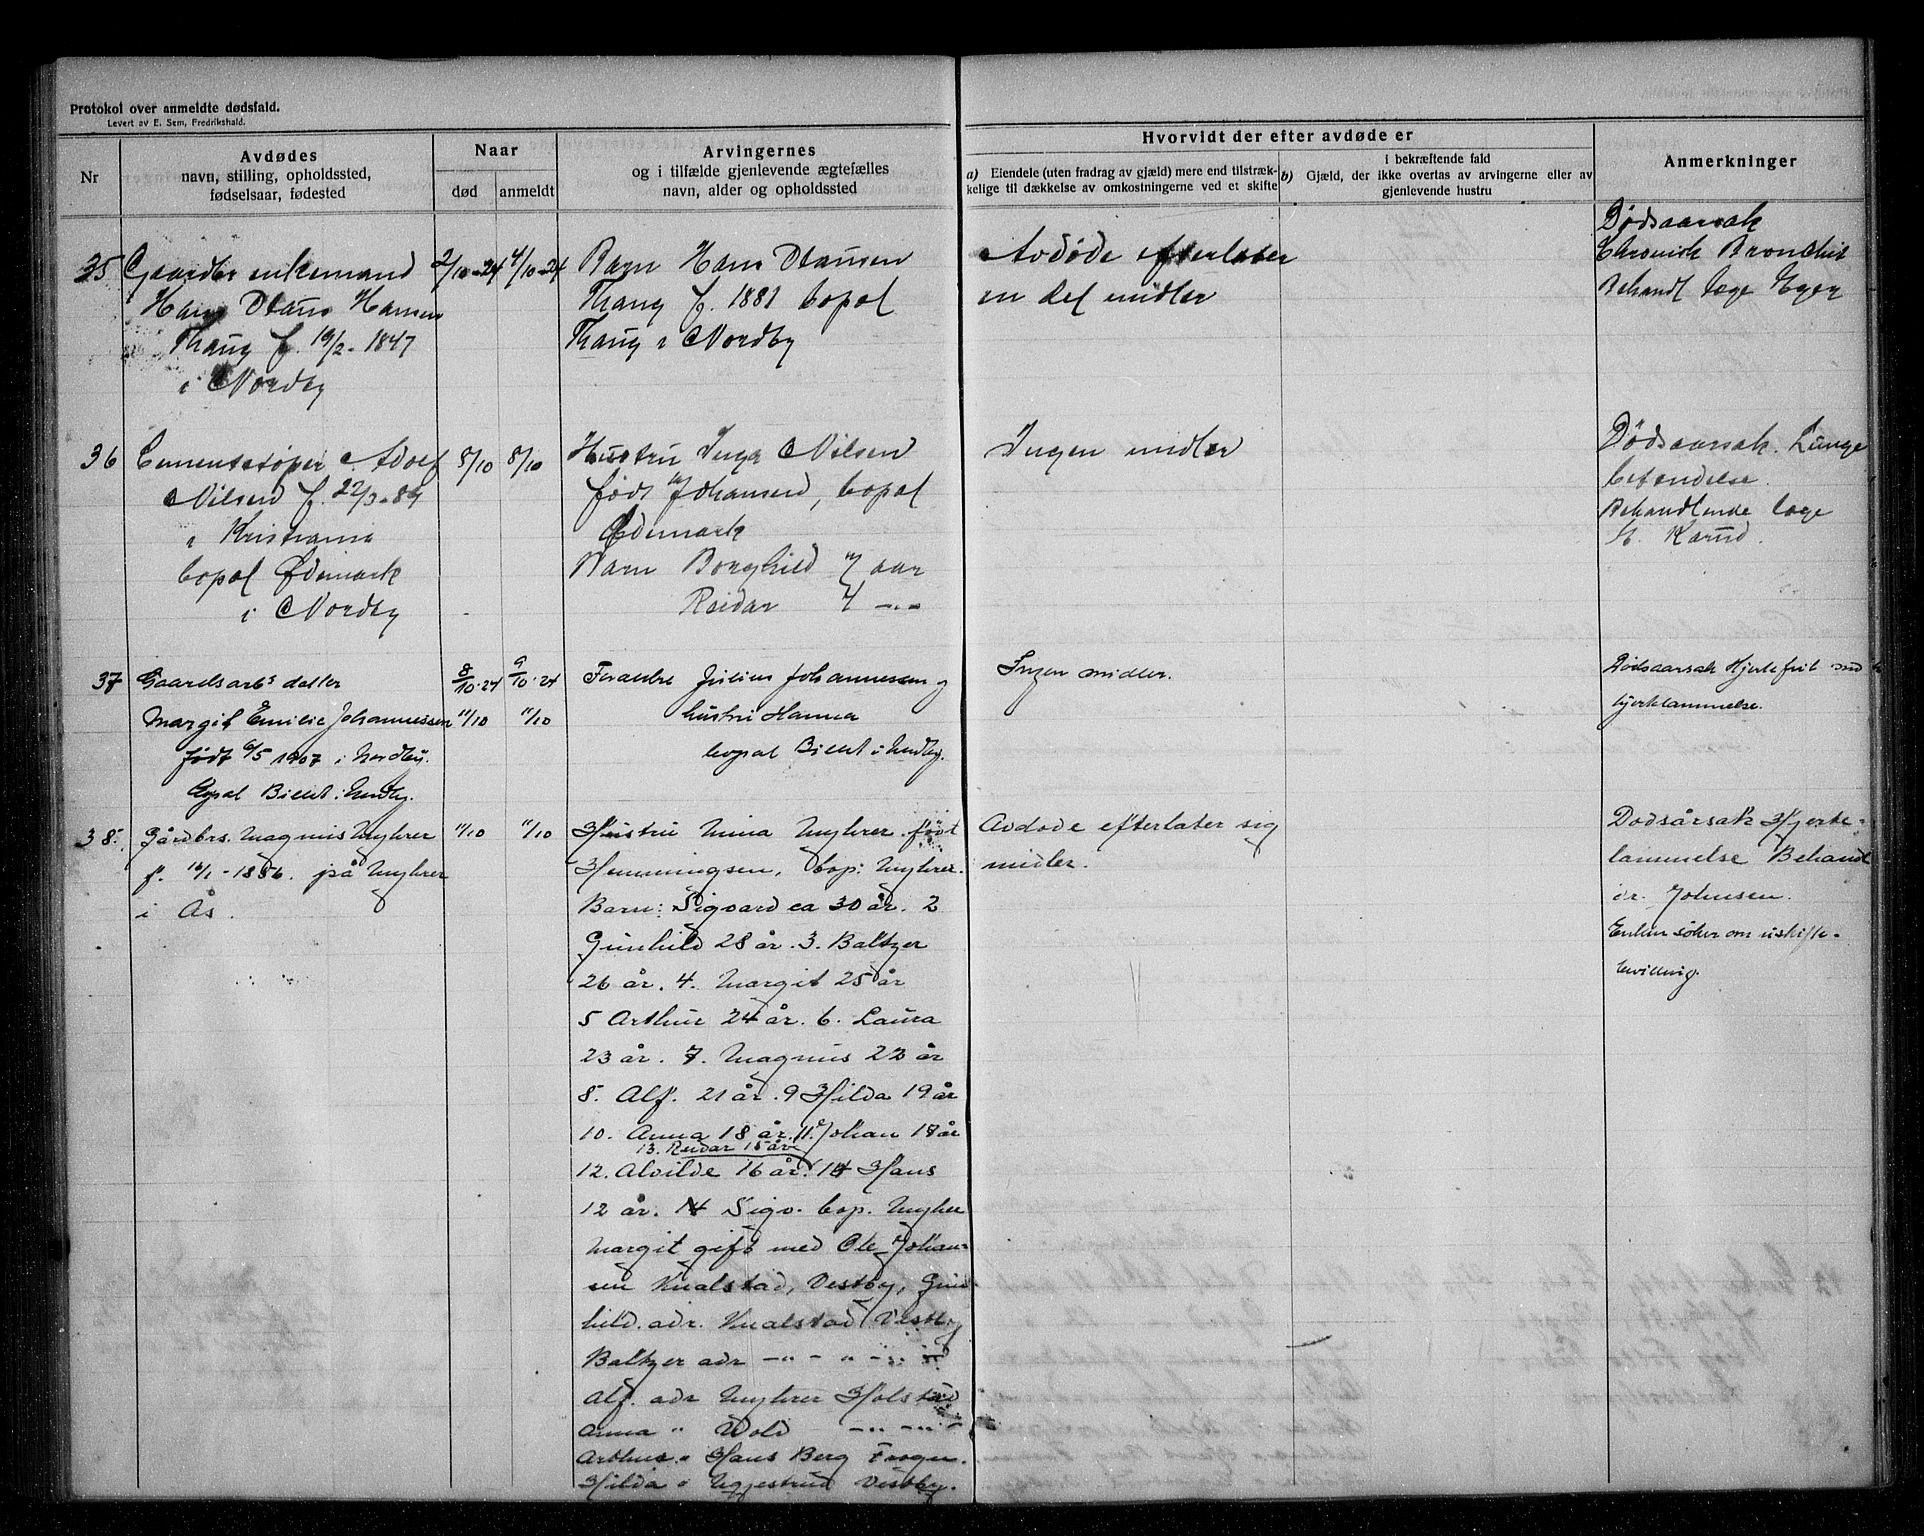 Protokol over anmeldte dødsfald.
Levert av E. Sem, Fredrikshald.
Nr
Avdødes
navn, stilling, opholdssted,
fødselsaar, fødested
Naar
død
anmeldt
Arvingernes
og i tilfælde gjenlevende ægtefælles
navn, alder og opholdssted
Hvorvidt der efter avdøde er
a) Eiendele (uten fradrag av gjæld) mere end tilstræk-
kelige til dækkelse av omkostningerne ved et skifte
i bekræftende fald
b) Gjæld, der ikke overtas av arvingerne eller av
gjenlevende hustru
Anmerkninger
35 Gaardbr enkemand
Hans Hansen
Thaug f. 19/2-1847
i Nordby
2/10-24
4/10-24
Barn Hans Hansen
Thaug f. 1881 bopæl
Thaug i Nordby
Avdøde efterlater
en del midler
Dødsaarsak
Chronisk Bronchit
Behandl læge Eger
36 Cementstøper Adolf
Nilsen f. 22/3-89
i Kristiania
bopæl Ødemark
i Nordby
5/10
8/10
Hustru Inga Nilsen
født Johansen, bopæl
Ødemark
Barn Borghild 7 aar
Reidar 4 -"-
Ingen midler
Dødsaarsak. Lunge
betændelse.
Behandlende læge
37 Gaardsarbs datter
Margit Emilie Johannessen
født 6/5 1907 i Nordby.
Bopæl i Nordby.
8/10-24
9/10-24
11/10
11/10
Forældre Julius Johannessen og
hustru Hanna
bopæl i Nordby.
Ingen midler.
Dødsaarsak Hjertefeil med
hjertelammelse.
38. Gårdbrs. Magnus Myhrer
f. 16/1-1856. på Myhrer
i Ås.
11/10
11/10
Hustru Mina Myhrer født
Hemmingsen, bop: Myhrer.
Barn: Sigvard ca 30 år. 2
Gunhild 28 år. 3. Baltzer
26 år. 4. Margit 25 år
5 Arthur 24 år. 6. Laura
23 år. 7. Magnus 22 år
8. Alf. 21 år. 9 Hilda 19 år
10. Anna 18 år. 11. Johan 17 år
13. Reidar 15 år
12. Alvilde 16 år. 14 Hans
12 år. 14 Sigv. bop. Myhrer
Margit gift med Ole Johan-
sen Kualstad, Vestby, Gun-
hild. adr. Kualstad Vestby
Baltzer adr -"- -"-
Alf. adr Myhrer
Anna " Wold -"-
Arthur " Hans Berg Frogn.
Hilda " Vestby.
Avdøde efterlater sig
midler.
Dødsårsak Hjerte-
lammelse Behandl
dr. Johnsen.
Enken søker om uskifte-
bevilling.